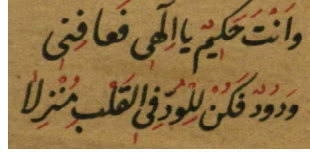 وَانْتَ حَكِيمٌ يا اِلٰهِى فَعَافِنِى
وَدُودٌ فَكُنْ لِلْوُدِّ فِى القَلْبِ مُنْزِلا